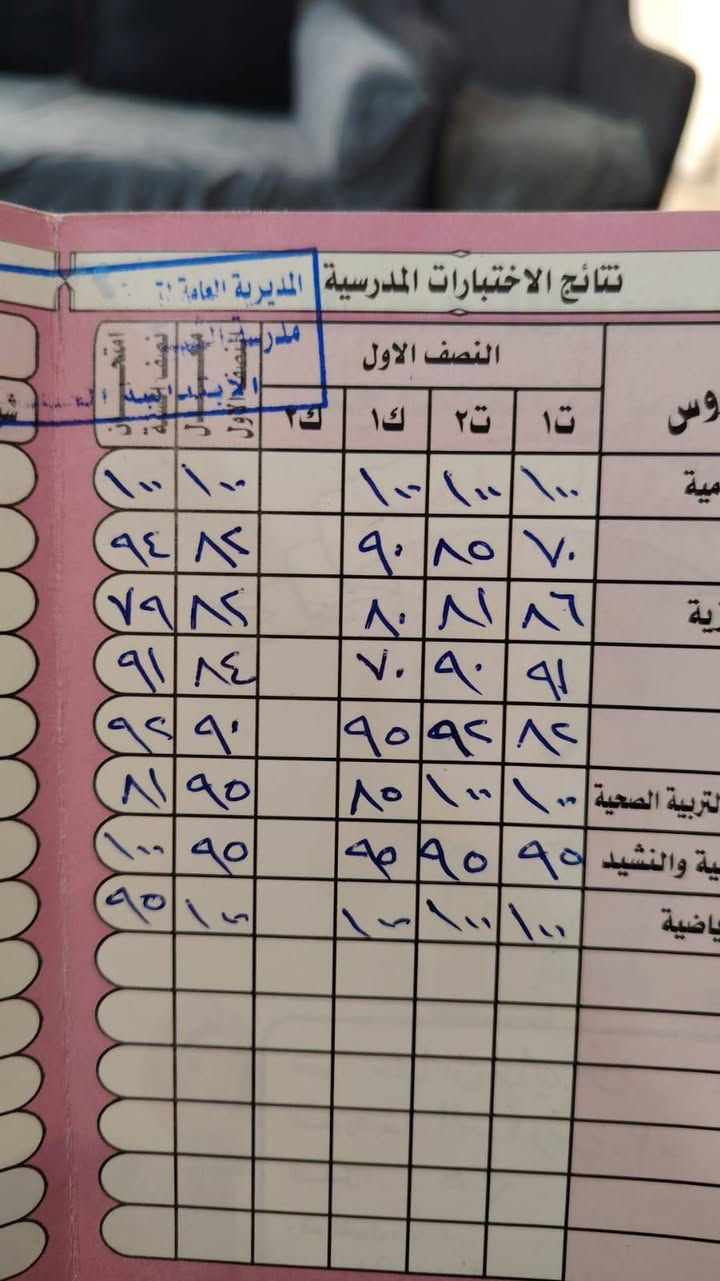 نتائج الاختبارات المدرسية
المديرية العامة
مدرسة
الابتدائية
النصف الاول
وس ت١ ت٢ ك١ ك٢ النصف الاول نصف السنة
مية ١٠٠ ١٠٠ ١٠٠ ١٠٠ ١٠٠
٧٠ ٨٥ ٩٠ ٨٢ ٩٤
زية ٨٦ ٨١ ٨٠ ٨٢ ٧٩
٩١ ٩٠ ٧٠ ٨٤ ٩١
٨٢ ٩٢ ٩٥ ٩٠ ٩٢
لتربية الصحية ١٠٠ ١٠٠ ٨٥ ٩٥ ٨١
ية والنشيد ٩٥ ٩٥ ٩٥ ٩٥ ١٠٠
ياضية ١٠٠ ١٠٠ ١٠٠ ١٠٠ ٩٥